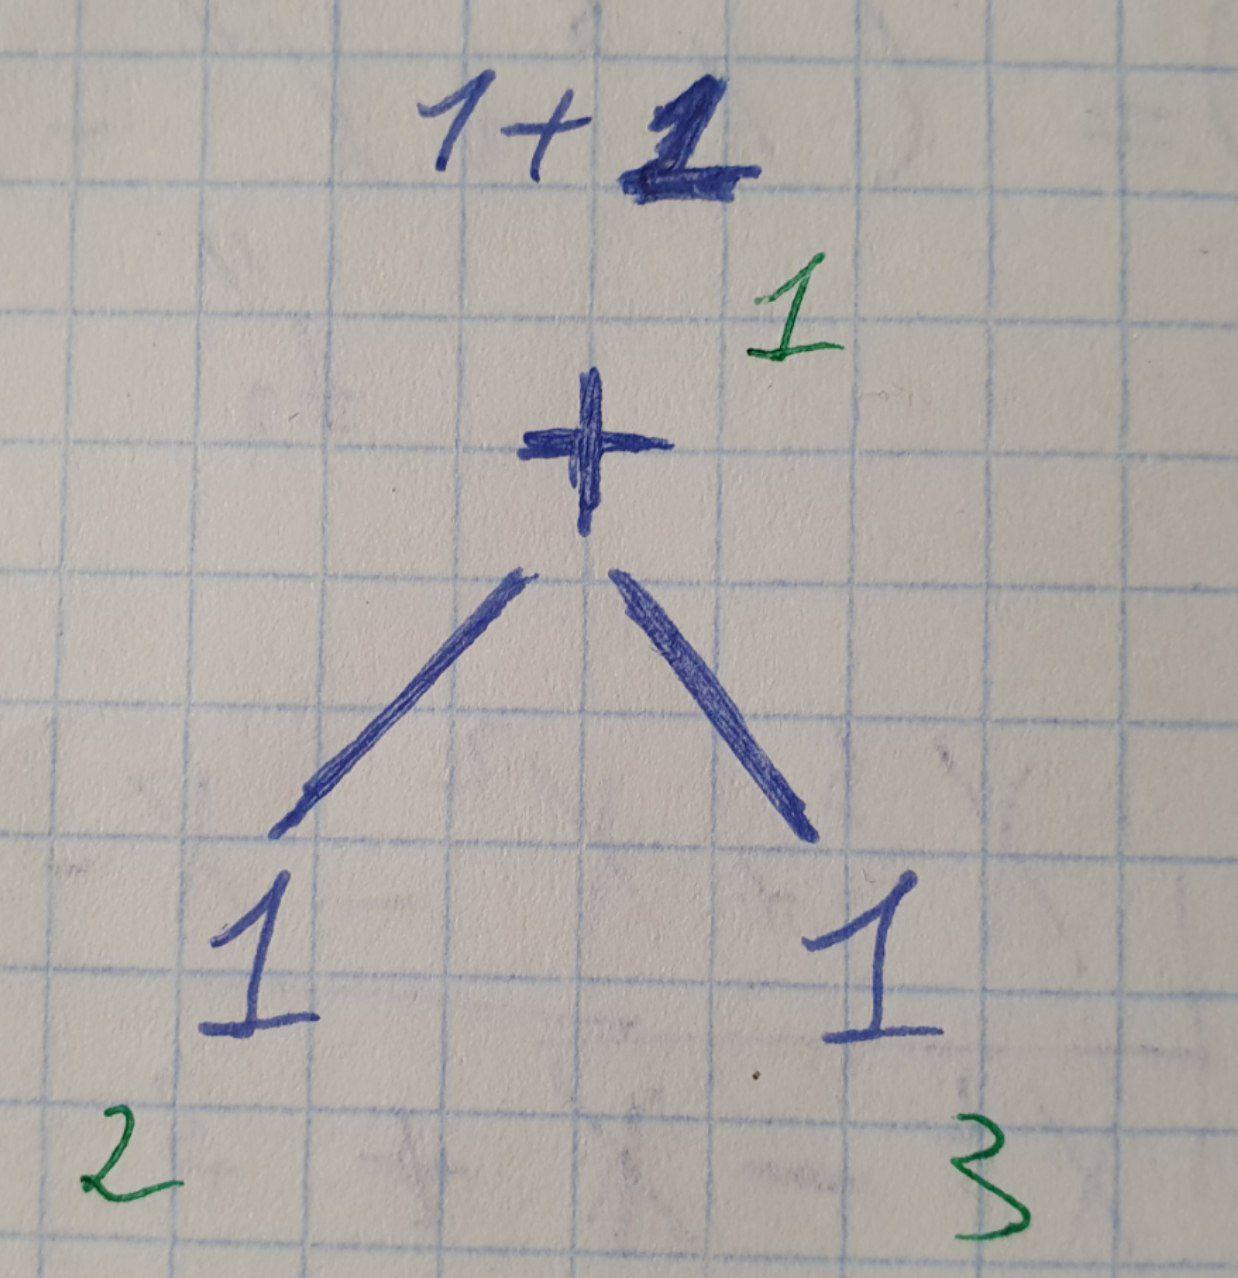 1+1
1
+
1 1
2 3